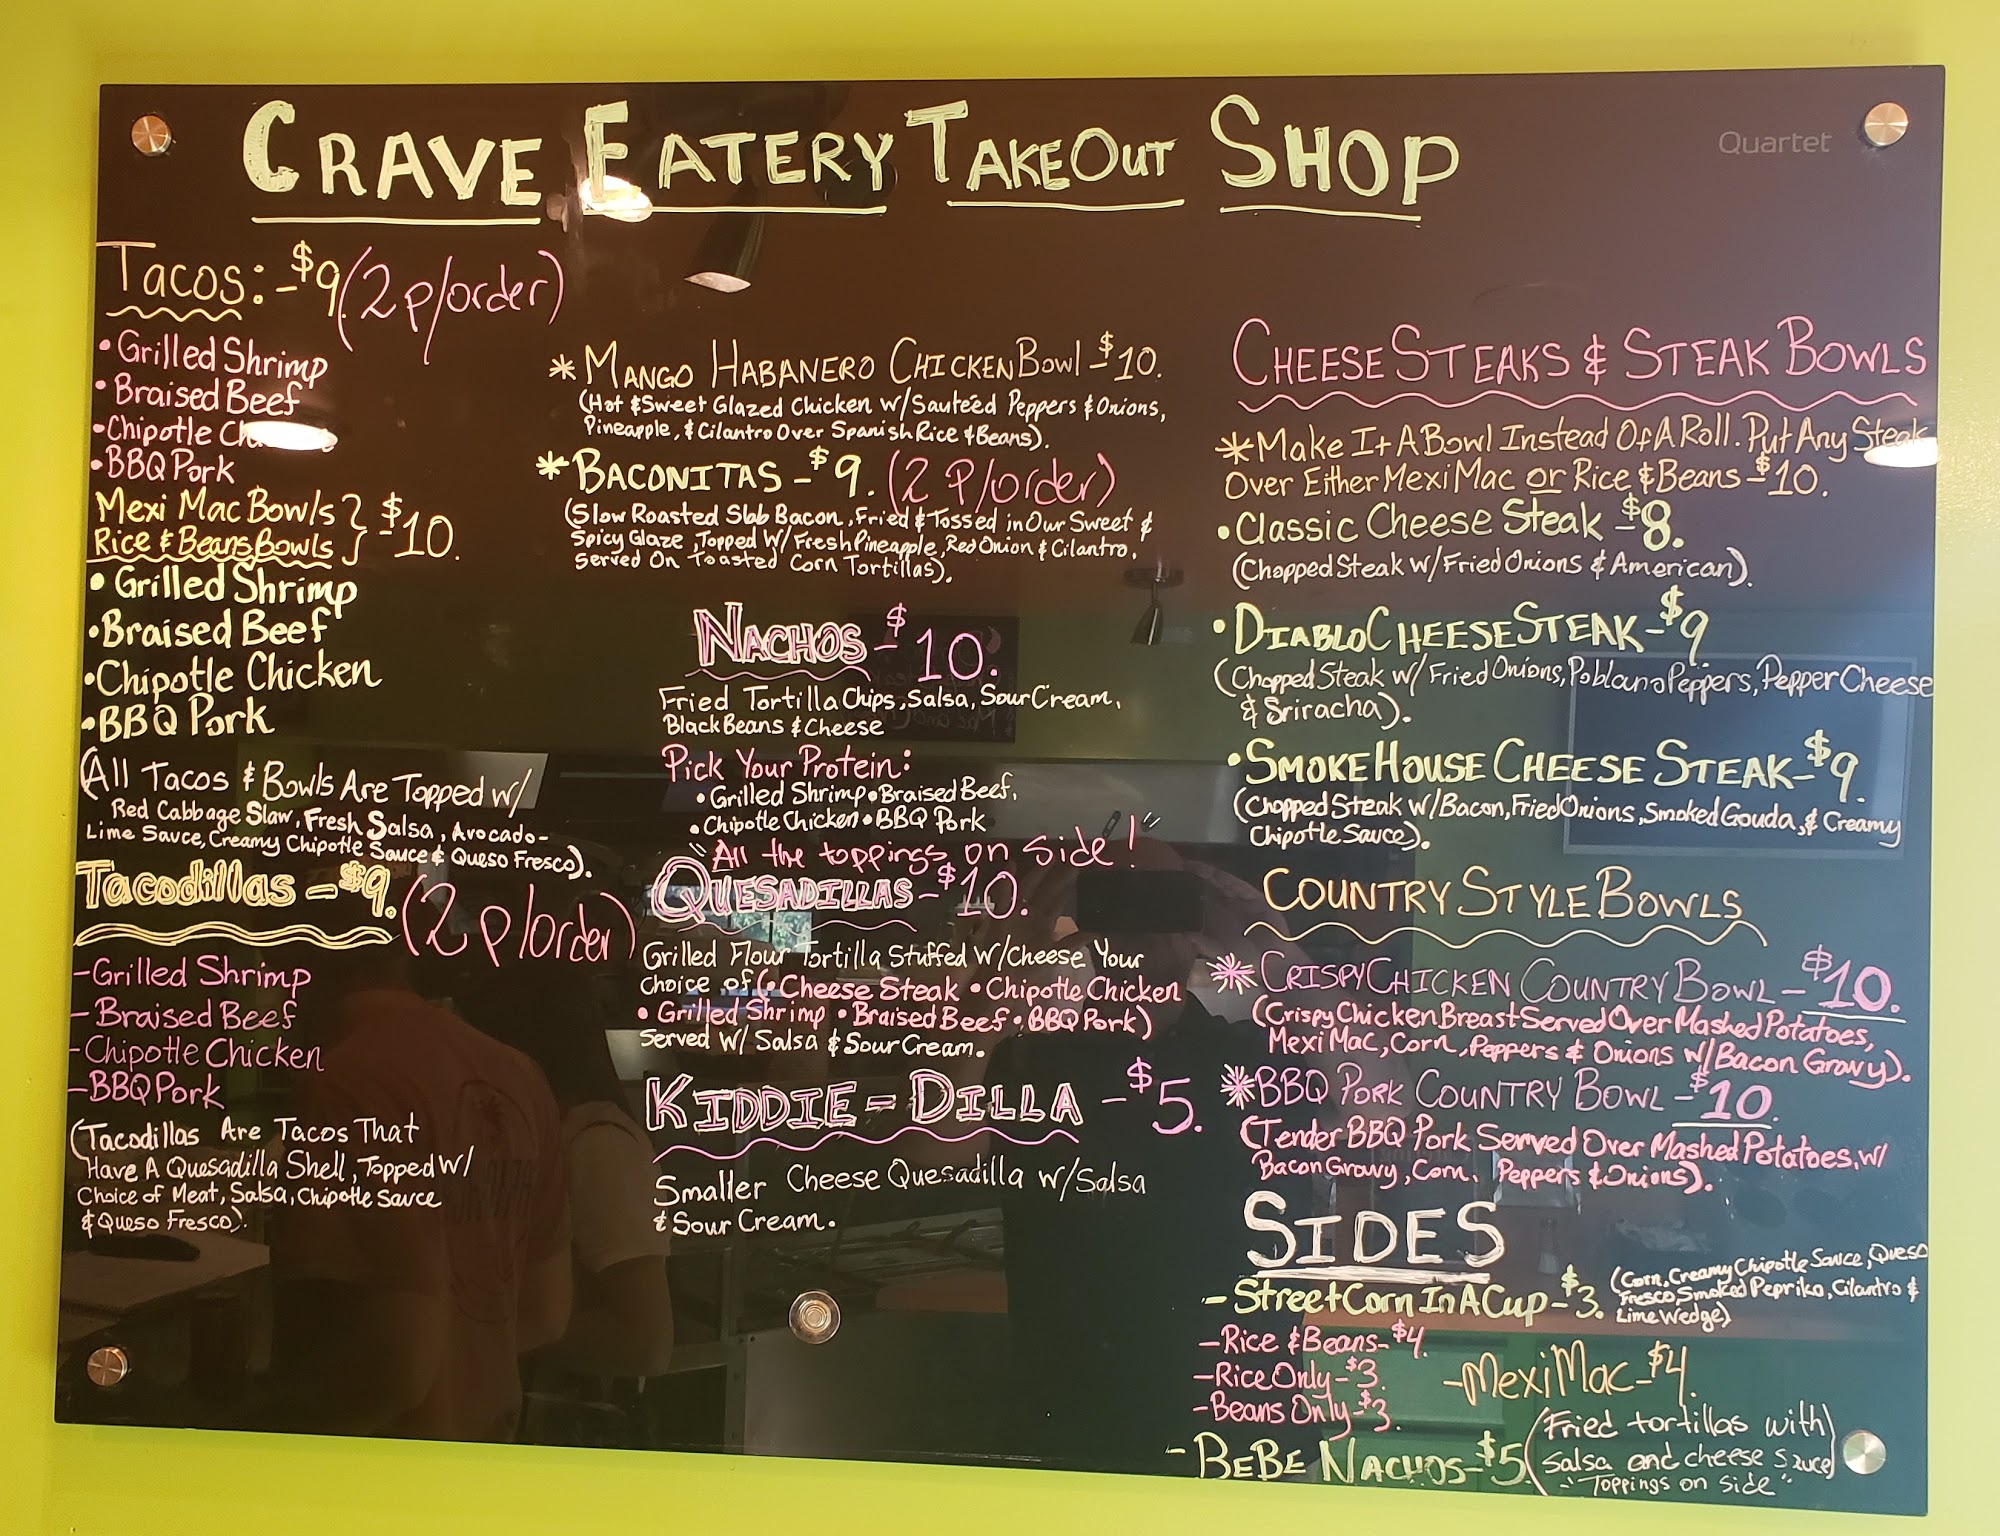 CRAVE EATERY TAKEOUT SHOP
Quartet
Tacos: -$9. (2 p/order)
• Grilled Shrimp
• Braised Beef
• Chipotle
• BBQ Pork
Mexi Mac Bowls
Rice & Beans Bowls } -$10.
• Grilled Shrimp
• Braised Beef
• Chipotle Chicken
• BBQ Pork
(All Tacos & Bowls Are Topped w/
Red Cabbage Slaw, Fresh Salsa, Avocado-
Lime Sauce, Creamy Chipotle Sauce & Queso Fresco).
Tacodillas - $9. (2 p/order)
- Grilled Shrimp
- Braised Beef
- Chipotle Chicken
- BBQ Pork
(Tacodillas Are Tacos That
Have A Quesadilla Shell, Topped w/
Choice of Meat, Salsa, Chipotle Sauce
& Queso Fresco).
* MANGO HABANERO CHICKEN Bowl -$10.
(Hot & Sweet Glazed Chicken w/Sauteéd Peppers & Onions,
Pineapple, & Cilantro Over Spanish Rice & Beans).
* BACONITAS - $9. (2 P/order)
(Slow Roasted Slab Bacon, Fried & Tossed in Our Sweet &
Spicy Glaze, Topped W/ Fresh Pineapple, Red Onion & Cilantro,
Served On Toasted Corn Tortillas).
NACHOS - $10.
Fried Tortilla Chips, Salsa, Sour Cream,
Black Beans & Cheese
Pick Your Protein:
• Grilled Shrimp • Braised Beef,
• Chipotle Chicken • BBQ Pork
"All the toppings on side!"
QUESADILLAS - $10.
Grilled Flour Tortilla Stuffed W/Cheese Your
Choice of (• Cheese Steak • Chipotle Chicken
• Grilled Shrimp • Braised Beef • BBQ Pork)
Served W/ Salsa & Sour Cream.
KIDDIE-DILLA - $5.
Smaller Cheese Quesadilla w/Salsa
& Sour Cream.
CHEESE STEAKS & STEAK BOWLS
* Make It A Bowl Instead Of A Roll. Put Any Steak
Over Either Mexi Mac or Rice & Beans -$10.
• Classic Cheese Steak -$8.
(Chopped Steak w/Fried Onions & American).
• DIABLO CHEESE STEAK -$9
(Chopped Steak w/ Fried Onions, Poblano Peppers, Pepper Cheese
& Sriracha).
• SMOKE HOUSE CHEESE STEAK -$9.
(Chopped Steak w/Bacon, Fried Onions, Smoked Gouda, & Creamy
Chipotle Sauce).
COUNTRY STYLE BOWLS
* CRISPY CHICKEN COUNTRY BOWL - $10.
(Crispy Chicken Breast Served Over Mashed Potatoes,
Mexi Mac, Corn, Peppers & Onions w/Bacon Gravy).
* BBQ PORK COUNTRY BOWL - $10.
(Tender BBQ Pork Served Over Mashed Potatoes, w/
Bacon Gravy, Corn, Peppers & Onions).
SIDES
- Street Corn In A Cup - $3. (Corn, Creamy Chipotle Sauce, Queso
Fresco, Smoked Peprika, Cilantro &
Lime Wedge)
- Rice & Beans - $4.
- Rice Only - $3.
- Beans Only - $3.
- Mexi Mac - $4.
- BEBE NACHOS - $5. (Fried tortillas with
Salsa and cheese sauce)
"Toppings on side"